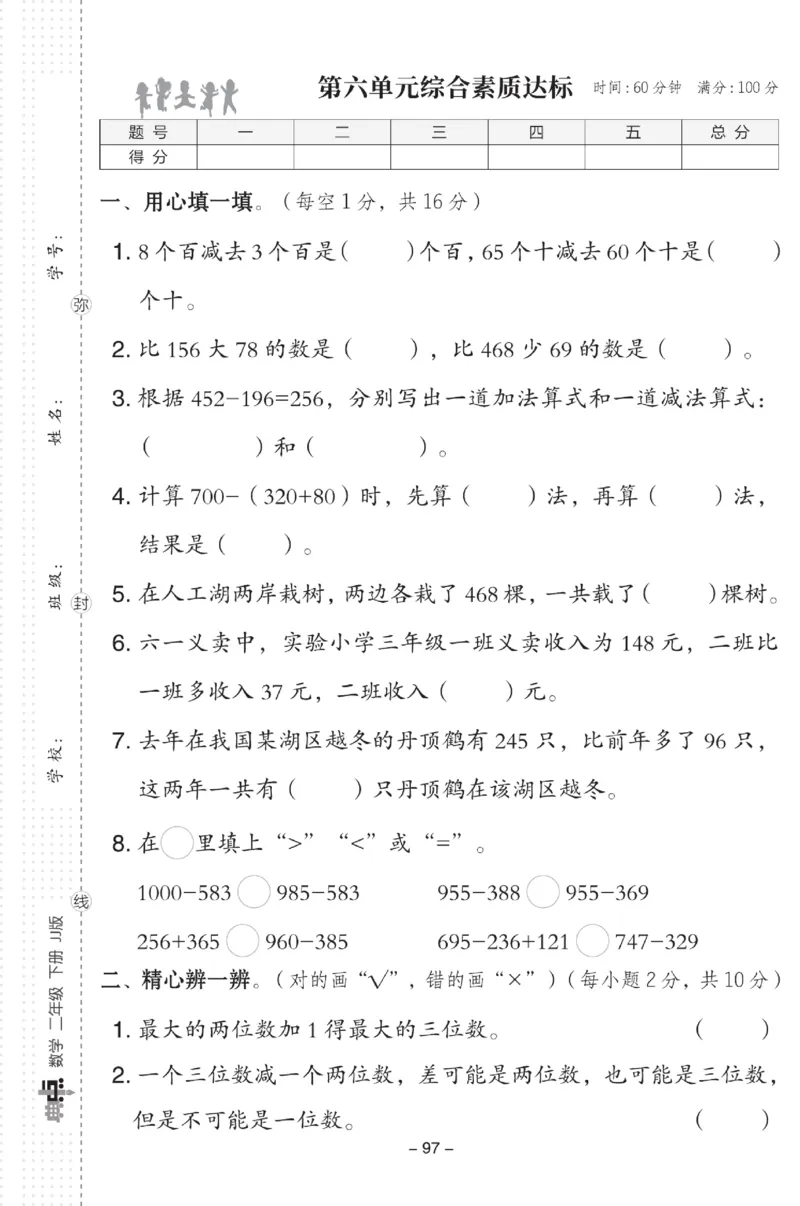 第六单元综合素质达标 时间:60分钟 满分:100分
题号 一 二 三 四 五 总分
得分
一、用心填一填。(每空1分,共16分)
1. 8个百减去3个百是( )个百,65个十减去60个十是( )
个十。
2. 比156大78的数是( ),比468少69的数是( )。
3. 根据452-196=256,分别写出一道加法算式和一道减法算式:
( )和( )。
4. 计算700-(320+80)时,先算( )法,再算( )法,
结果是( )。
5. 在人工湖两岸栽树,两边各栽了468棵,一共载了( )棵树。
6. 六一义卖中,实验小学三年级一班义卖收入为148元,二班比
一班多收入37元,二班收入( )元。
7. 去年在我国某湖区越冬的丹顶鹤有245只,比前年多了96只,
这两年一共有( )只丹顶鹤在该湖区越冬。
8. 在○里填上“>”“<”或“=”。
1000-583○985-583 955-388○955-369
256+365○960-385 695-236+121○747-329
二、精心辨一辨。(对的画“√”,错的画“×”)(每小题2分,共10分)
1. 最大的两位数加1得最大的三位数。 ( )
2. 一个三位数减一个两位数,差可能是两位数,也可能是三位数,
但是不可能是一位数。 ( )
-97-
学号:
弥
姓名:
班级:
封
学校:
线
典中点 数学 二年级 下册 JJ版